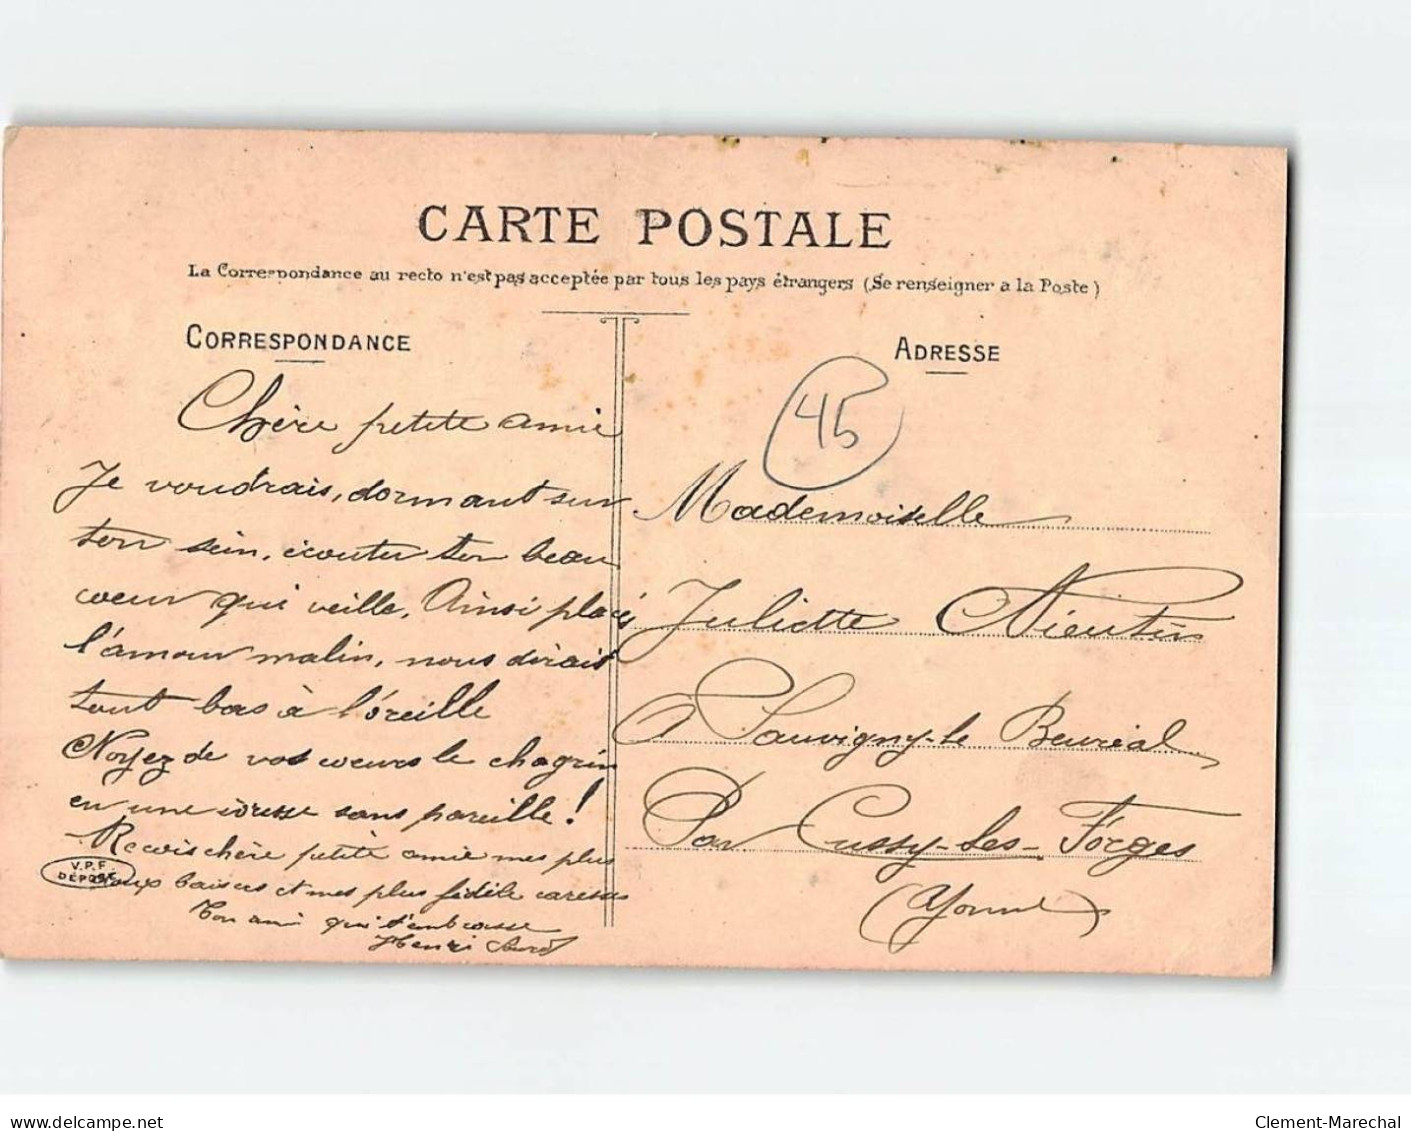 CARTE POSTALE
La Correspondance au recto n'est pas acceptée par tous les pays étrangers (Se renseigner a la Poste)
CORRESPONDANCE
Chère petite amie
Je voudrais, dormant sur
ton sein, écouter ton beau
coeur qui veille, Ainsi placés
l'amour malin, nous dirait
tout bas à l'oreille
Noyez de vos coeurs le chagrin
en une ivresse sans pareille!
Recois chère petite amie mes plus
doux baisers et mes plus fidèle caresses
Ton ami qui t'embrasse
Henri
V.P.F
DÉPOSÉ
ADRESSE
45
Mademoiselle
Juliette
à Sauvigny-le Beuréal
Par Cussy-les-Forges
(Yonne)
www.delcampe.net
Clement-Marechal